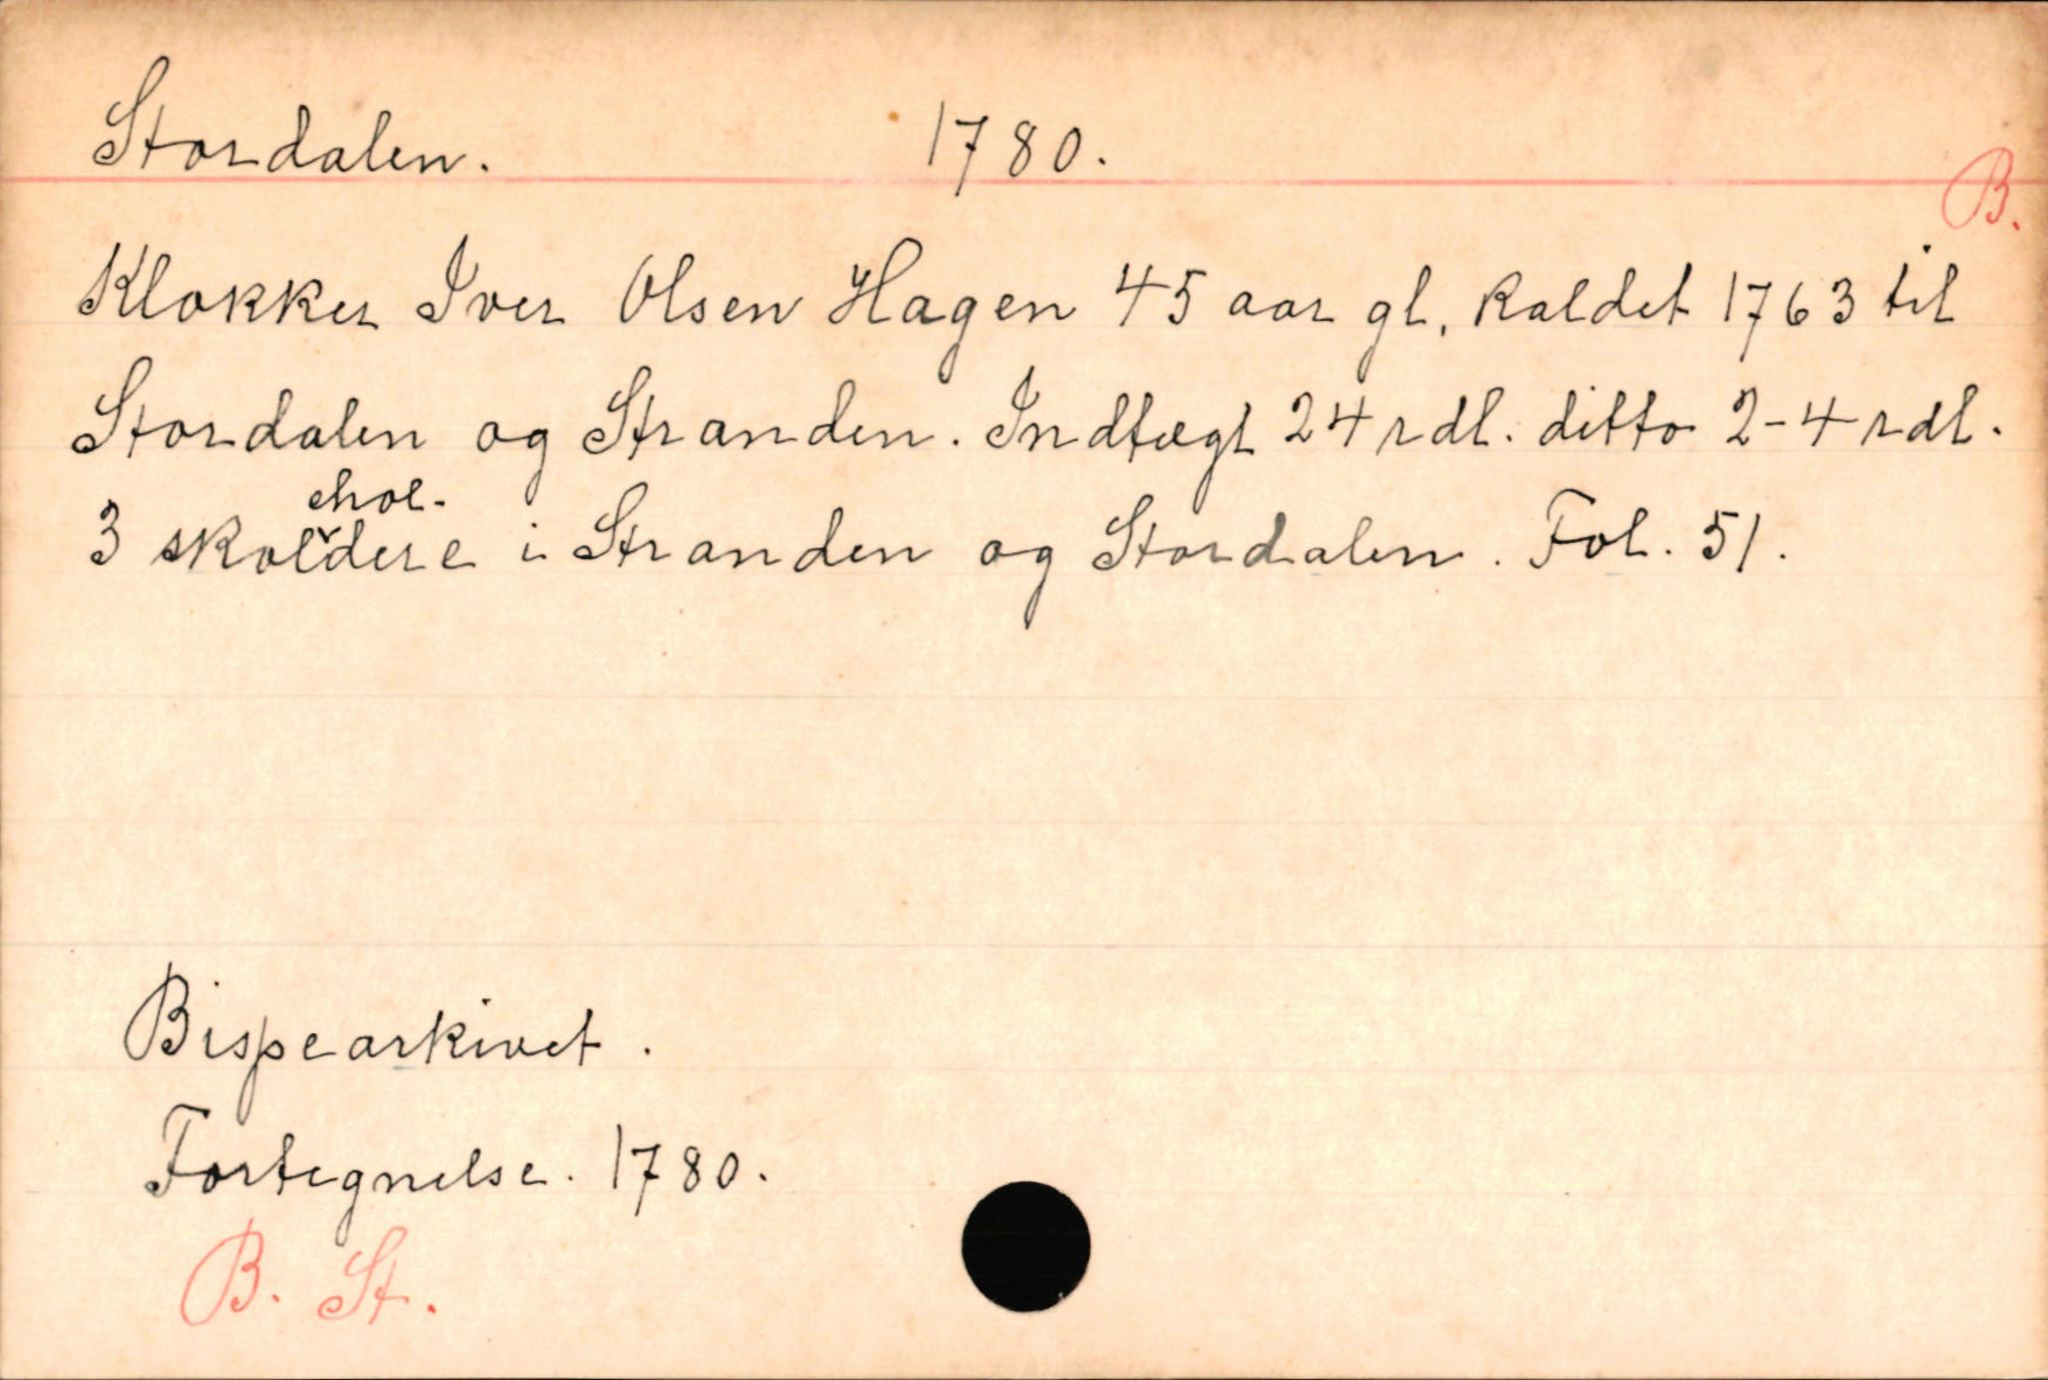 Stordalen. 1780.
B.
Klokker Iver Olsen Hagen 45 aar gl, kaldet 1763 til
Stordalen og Stranden. Indtægt 24 rdl. ditto 2-4 rdl.
3 skoldere i Stranden og Stordalen. Fol. 51.
Bispearkivet.
Fortegnelse. 1780.
B. St.